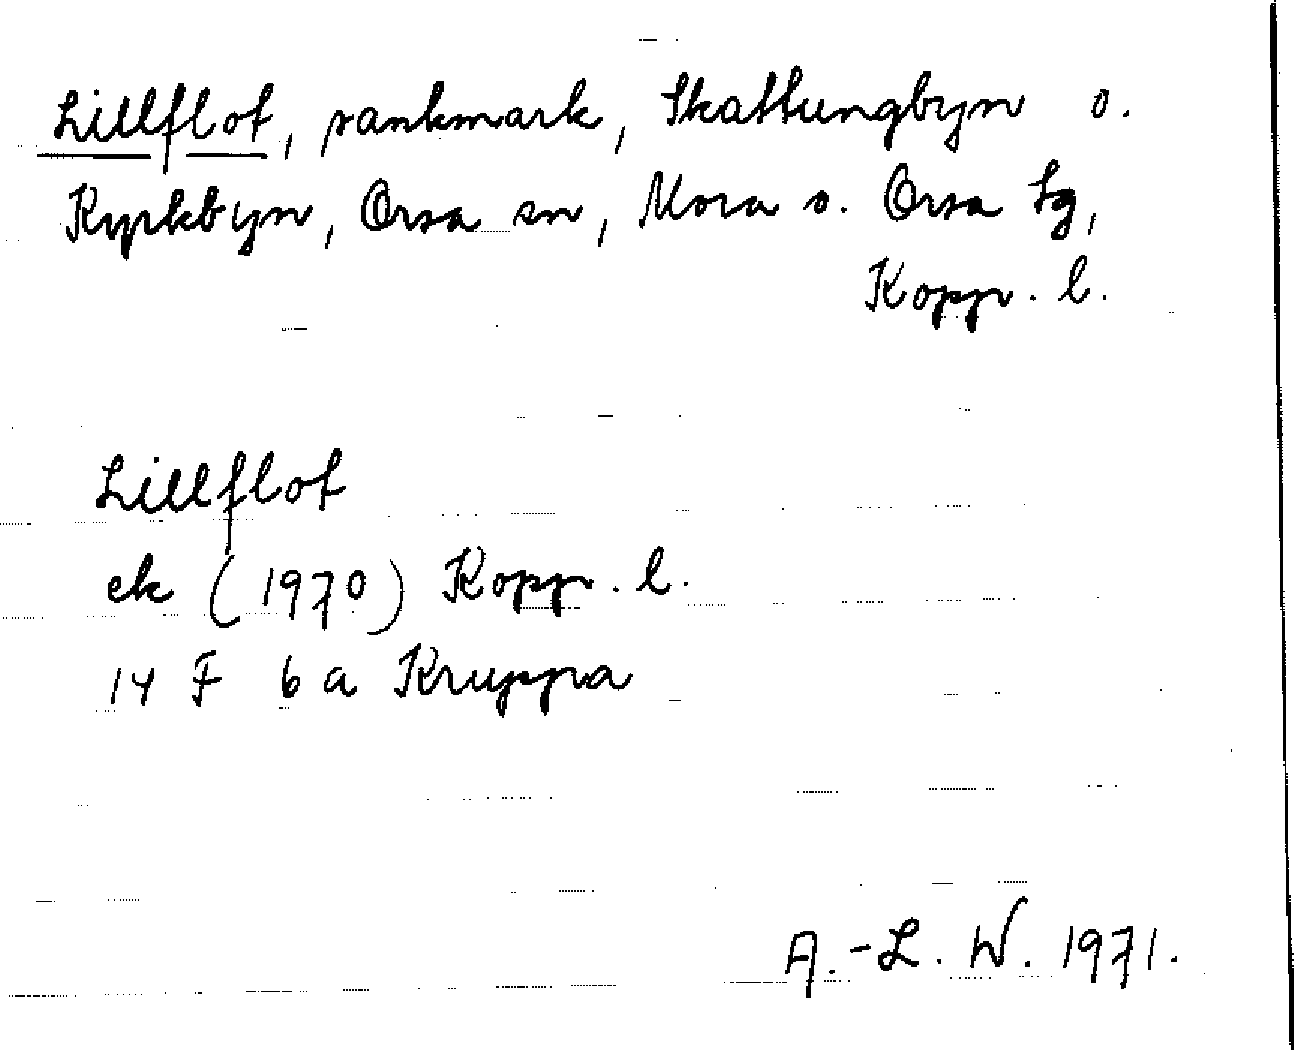 Lillflot, sankmark, Skattungbyn o.
Kyrkbyn, Orsa sn, Mora o. Orsa tg,
Kopp. l.
Lillflot
ek (1970) Kopp. l.
14 F 6 a Kruppa
A.-L. W. 1971.